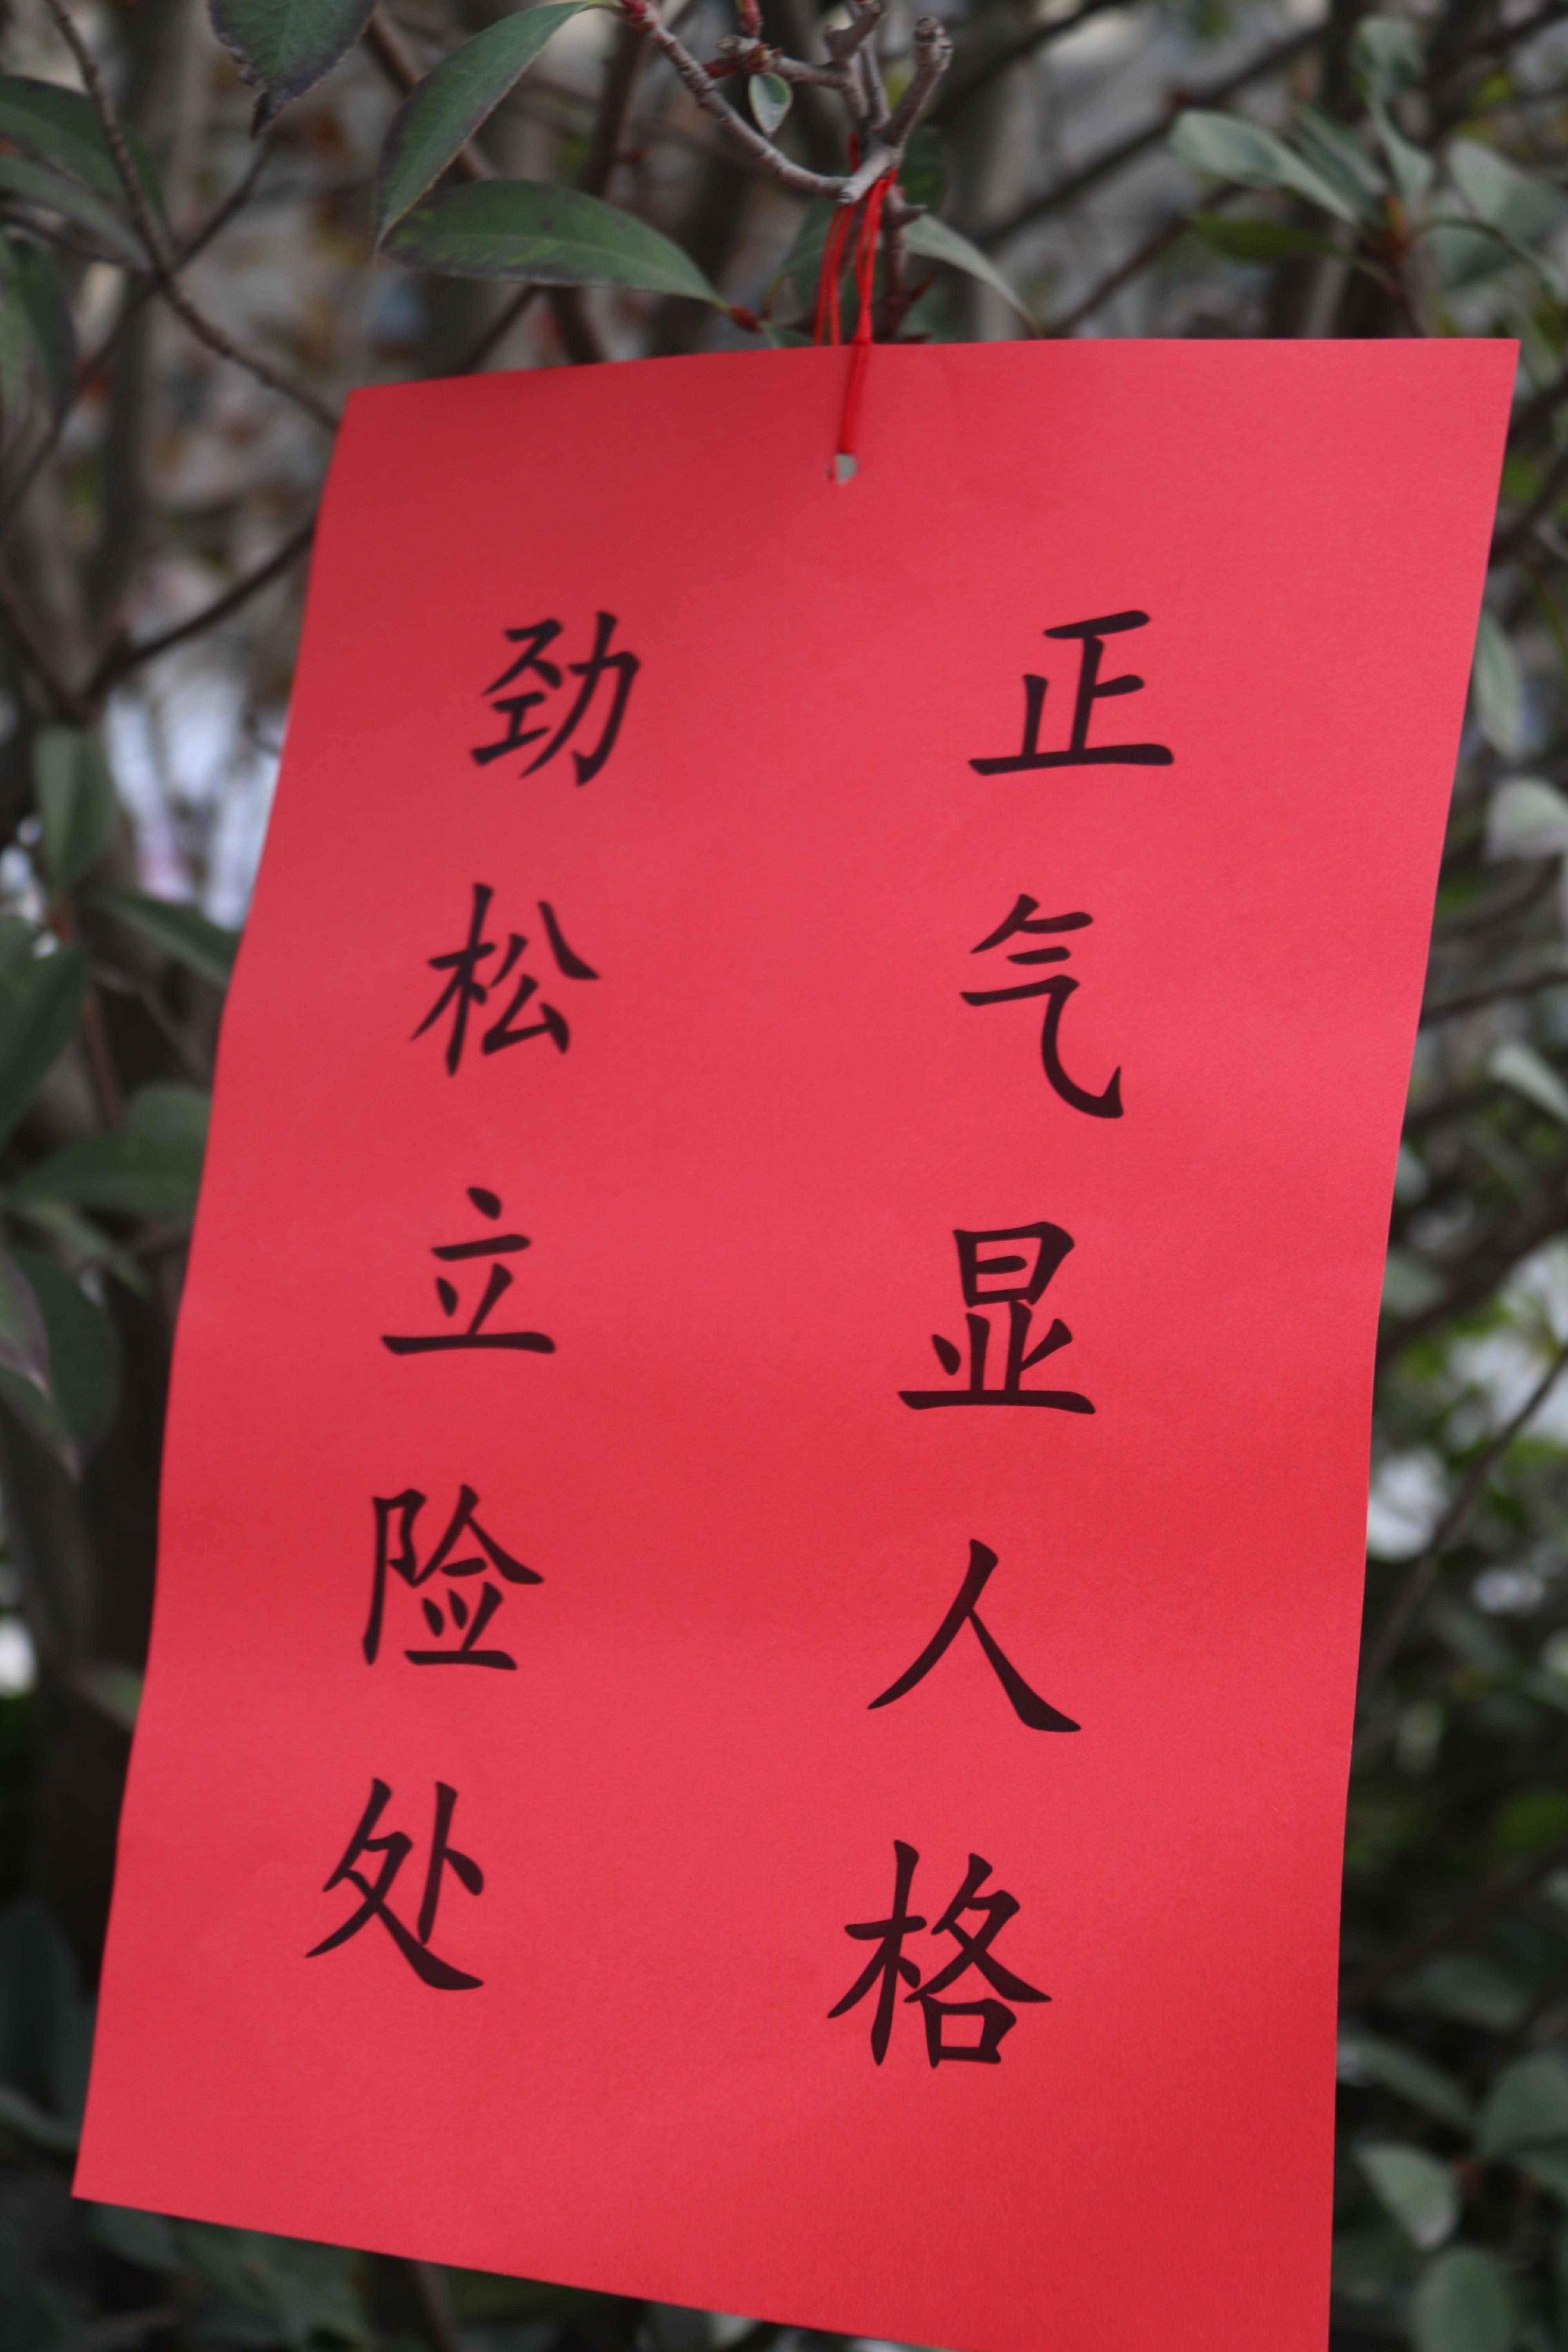 正气显人格
劲松立险处